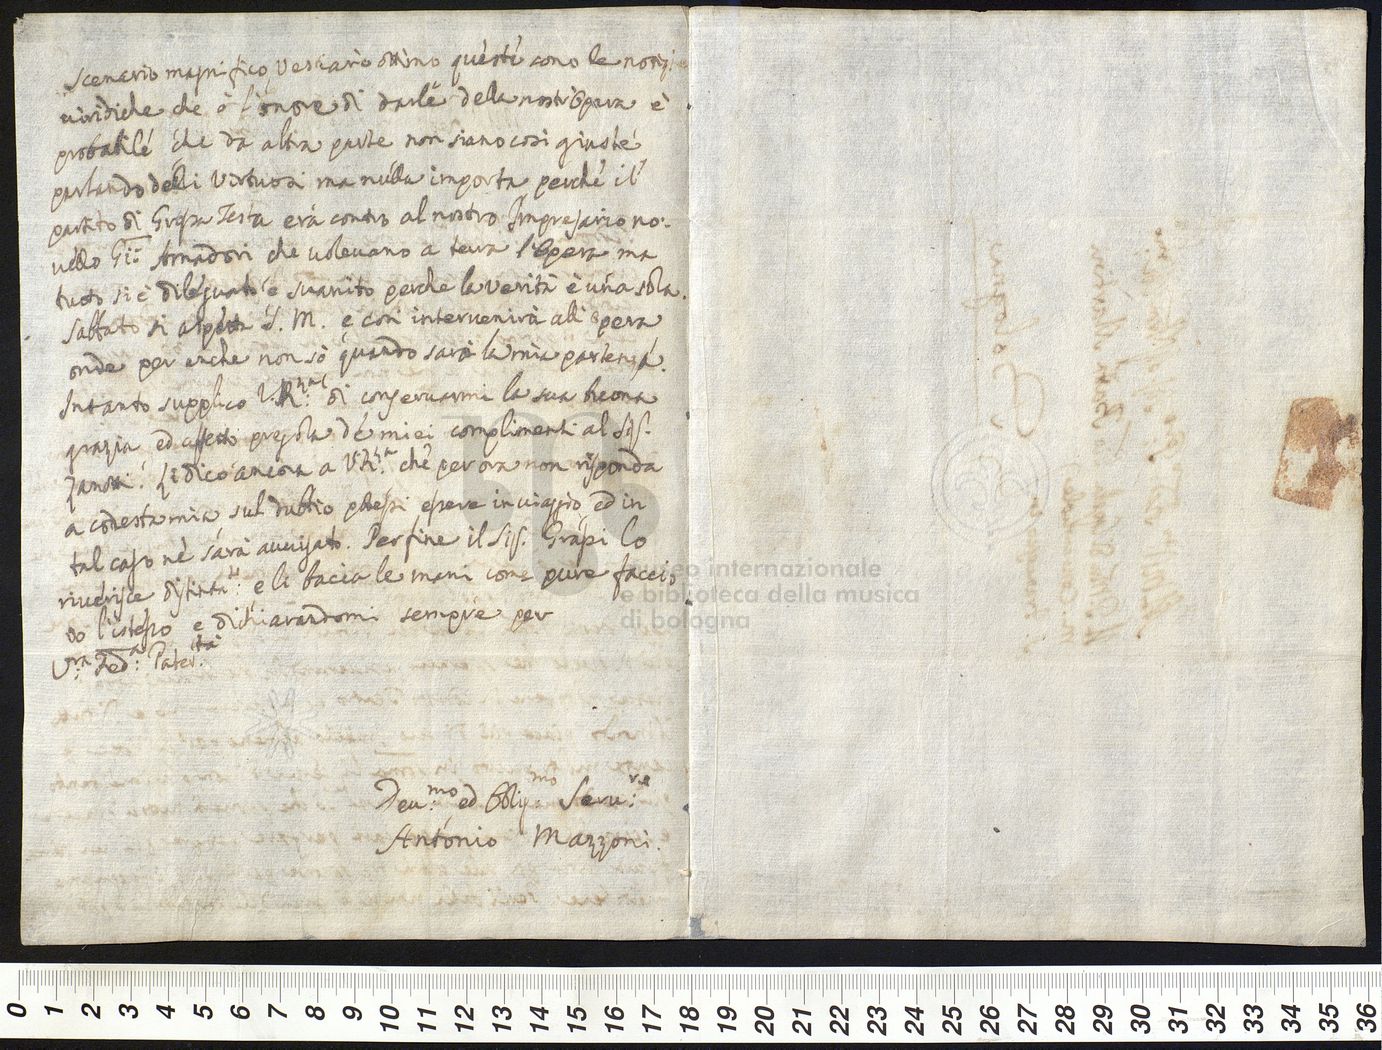 Scenario magnifico Vestiario ottimo queste sono le notizie
viridiche che ò l'onore di darle della nostr'Opera è
probabile che da altra parte non siano così giuste
parlando delli Virtuosi ma nulla importa perchè il
partito di Grossa Testa erà contro al nostro Impresario no:
vello Amadori che volevano a terra l'Opera ma
tutto si è dileguato e suanito perche la verità è una sola.
Sabbato si aspetta S. M. e così interuenirà all opera
onde per anche non sò quando sarà la mia partenza.
Intanto supplico V. R.ma di conseruarmi la sua buona
grazia ed affetto pregola de miei complimenti al Sig.
Zanotti. Li dico ancora a V. R.za che per ora non risponda
a codesta mia sul dubbio potessi essere in viaggio, ed in
tal caso nè sarà avvisato. Perfine il Sig. Grassi lo
riverisce distinta.te e li bacia le mani come pure faccio
io l'istesso e dichiarandomi sempre per
V.ra Pater.ità
Deu.mo ed Obblig.mo Seru.re
Antonio Mazzoni.
Bologna
museo internazionale
e biblioteca della musica
di bologna
0 1 2 3 4 5 6 7 8 9 10 11 12 13 14 15 16 17 18 19 20 21 22 23 24 25 26 27 28 29 30 31 32 33 34 35 36